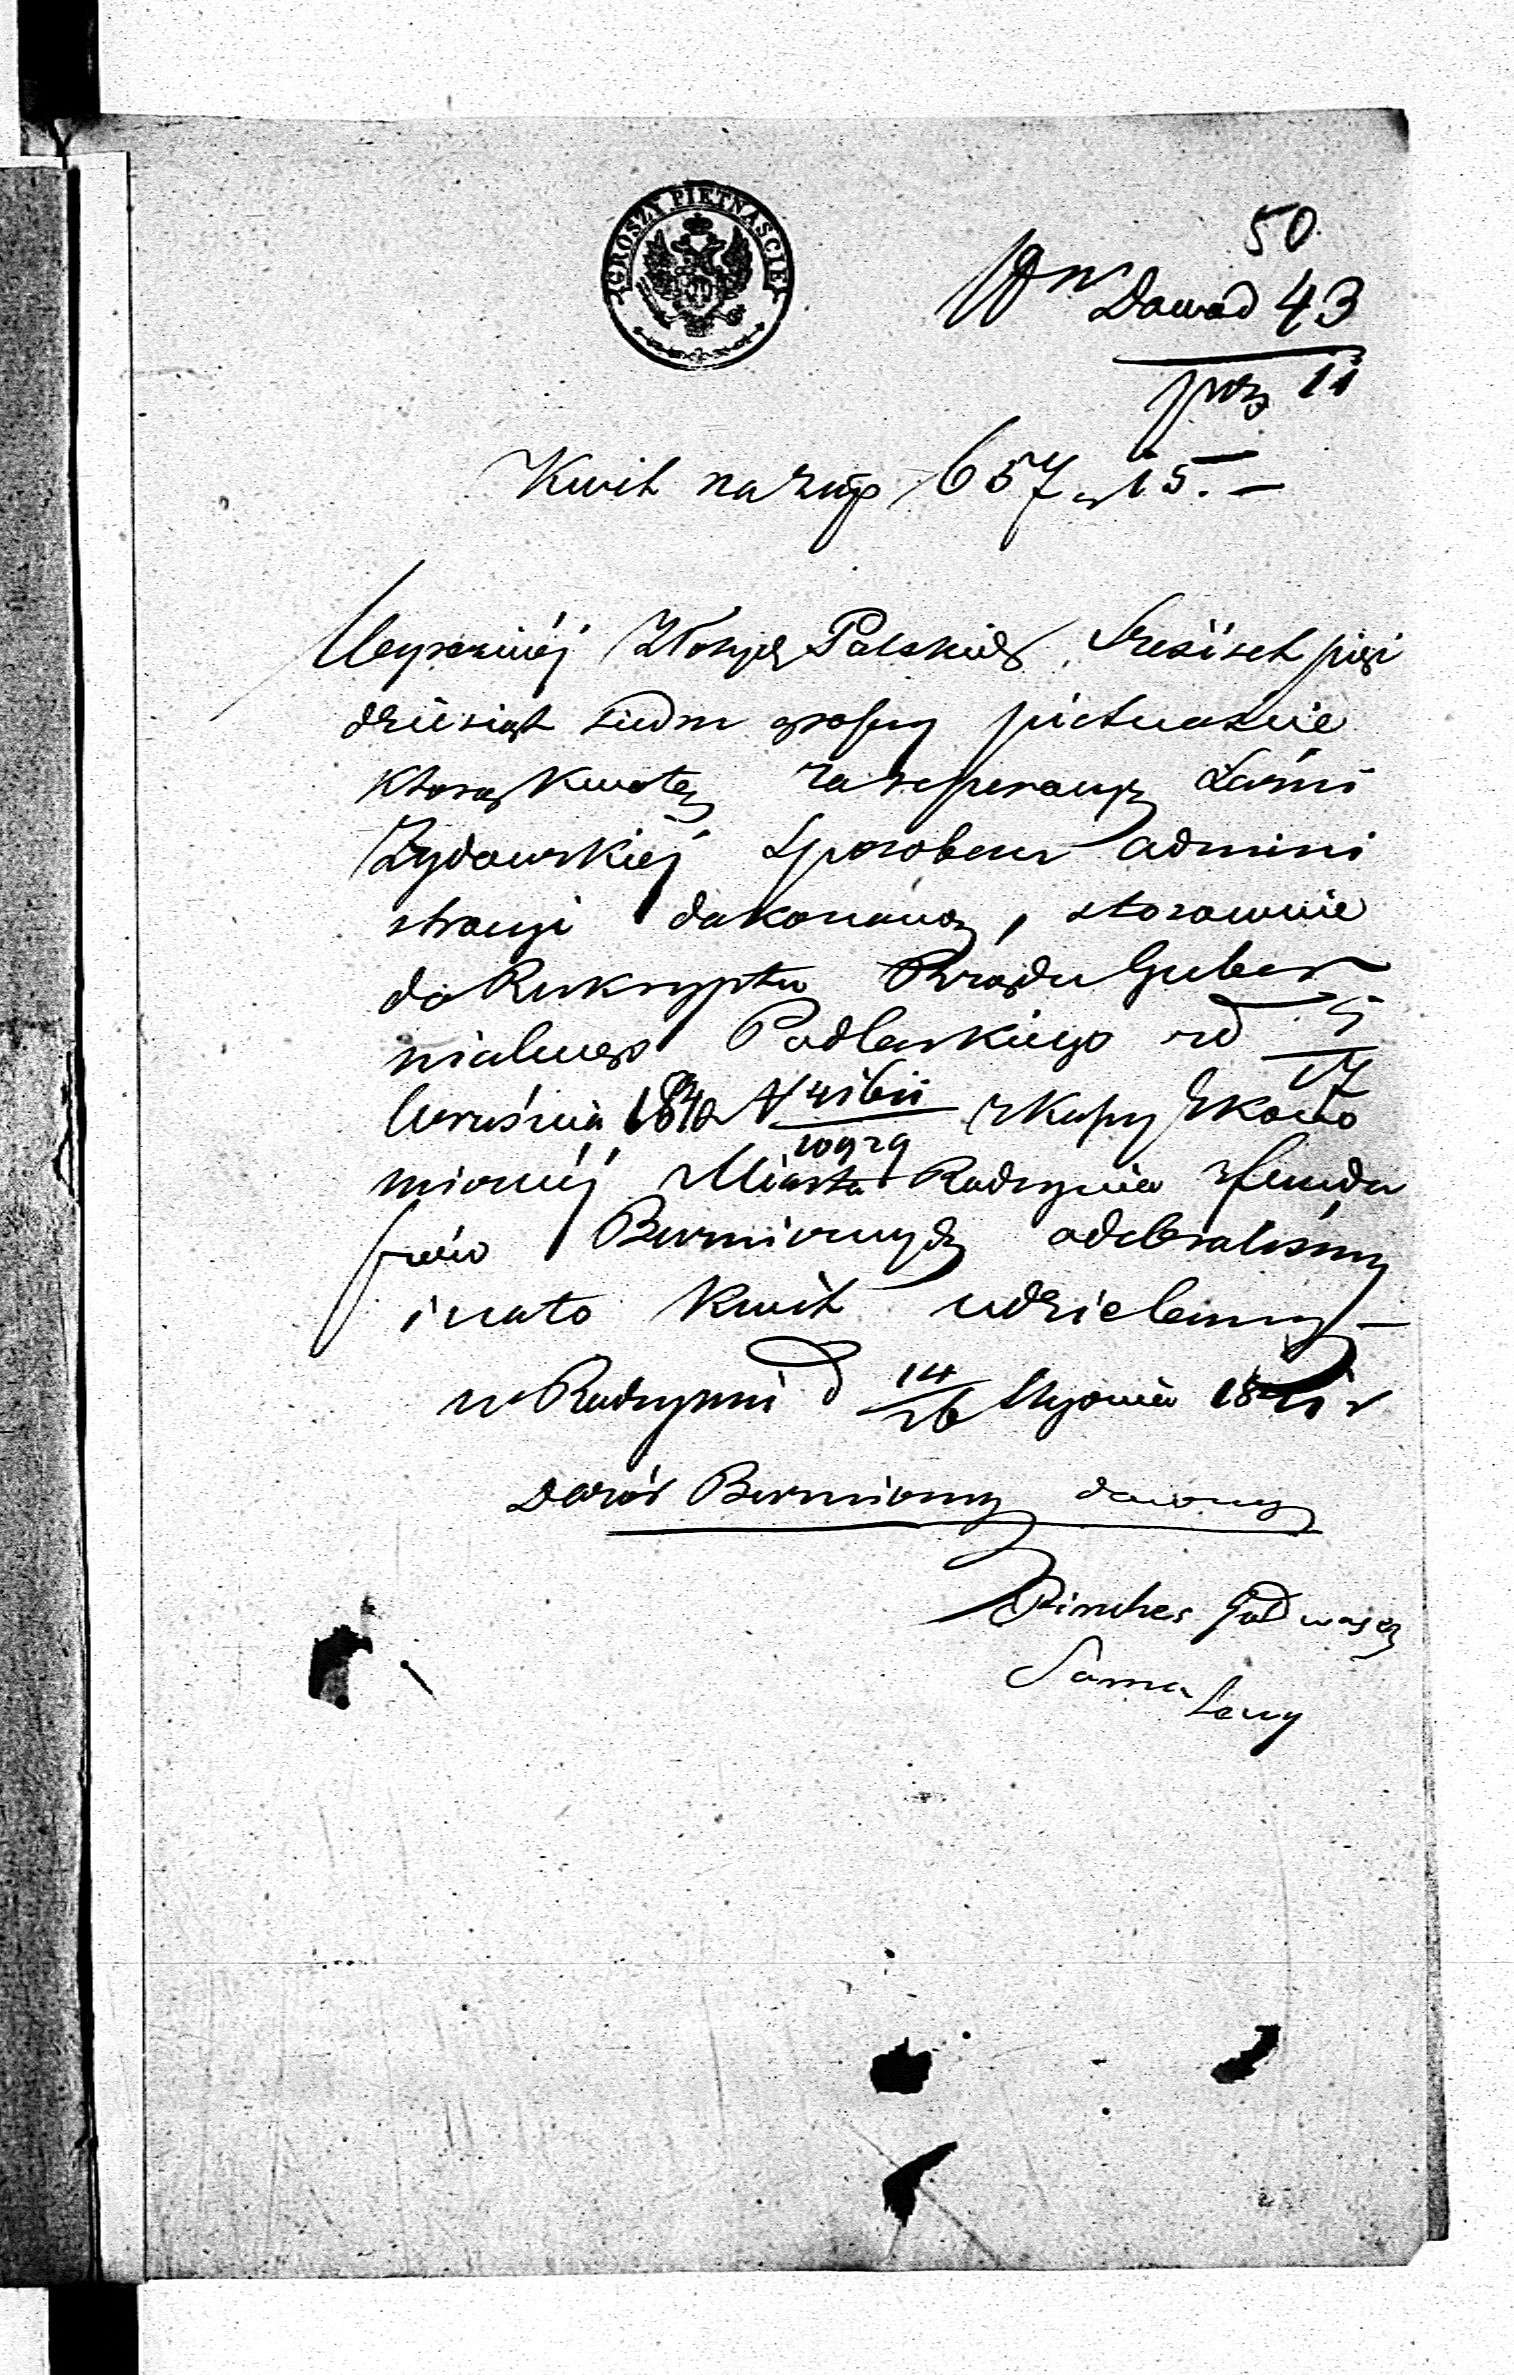 GROSZY PIĘTNAŚCIE
50
Dowód 43
poz 11
Kwit na złp 657 gr 15.—
Wyraźniéj Złotych Polskich Sześćset pięć
dziesiąt siedm groszy pietnaście
którą kwotę za reperacyą Łaźni
Żydowskiéj sposobem admini
stracyi dokonaną, stosownie
do Reskryptu Rządu Guber
nialnego Podlaskiego z d 5/17
Września 1840 N
z Kassy Ekono
micznéj Miasta Radzynia z fundu
szów Bożniczych odebraliśmy
i na to kwit udzielamy —
w Radzyniu d 14/26 Stycznia 1841 r
Dozór Bożniczny
Pinches